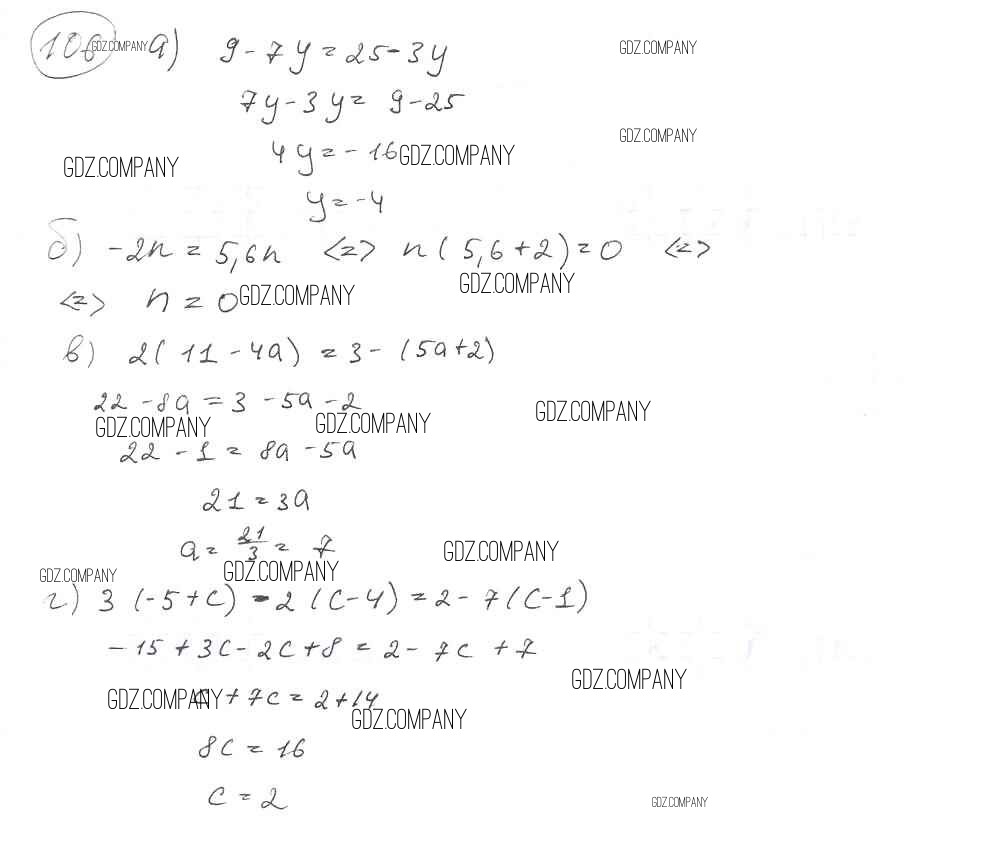 106 GDZ.COMPANY а) 9-7y=25-3y GDZ.COMPANY
7y-3y= 9-25
GDZ.COMPANY
4y=-16 GDZ.COMPANY
GDZ.COMPANY
y=-4
б) -2n=5,6n <=> n(5,6+2)=0 <=>
GDZ.COMPANY
<=> n=0 GDZ.COMPANY
в) 2(11-4a)=3-(5a+2)
22-8a=3-5a-2
GDZ.COMPANY GDZ.COMPANY GDZ.COMPANY
22-1=8a-5a
21=3a
a=21/3=7
GDZ.COMPANY
GDZ.COMPANY GDZ.COMPANY
г) 3(-5+c)-2(c-4)=2-7(c-1)
-15+3c-2c+8=2-7c+7
GDZ.COMPANY
GDZ.COMPANY +7c=2+14
GDZ.COMPANY
8c=16
c=2
GDZ.COMPANY